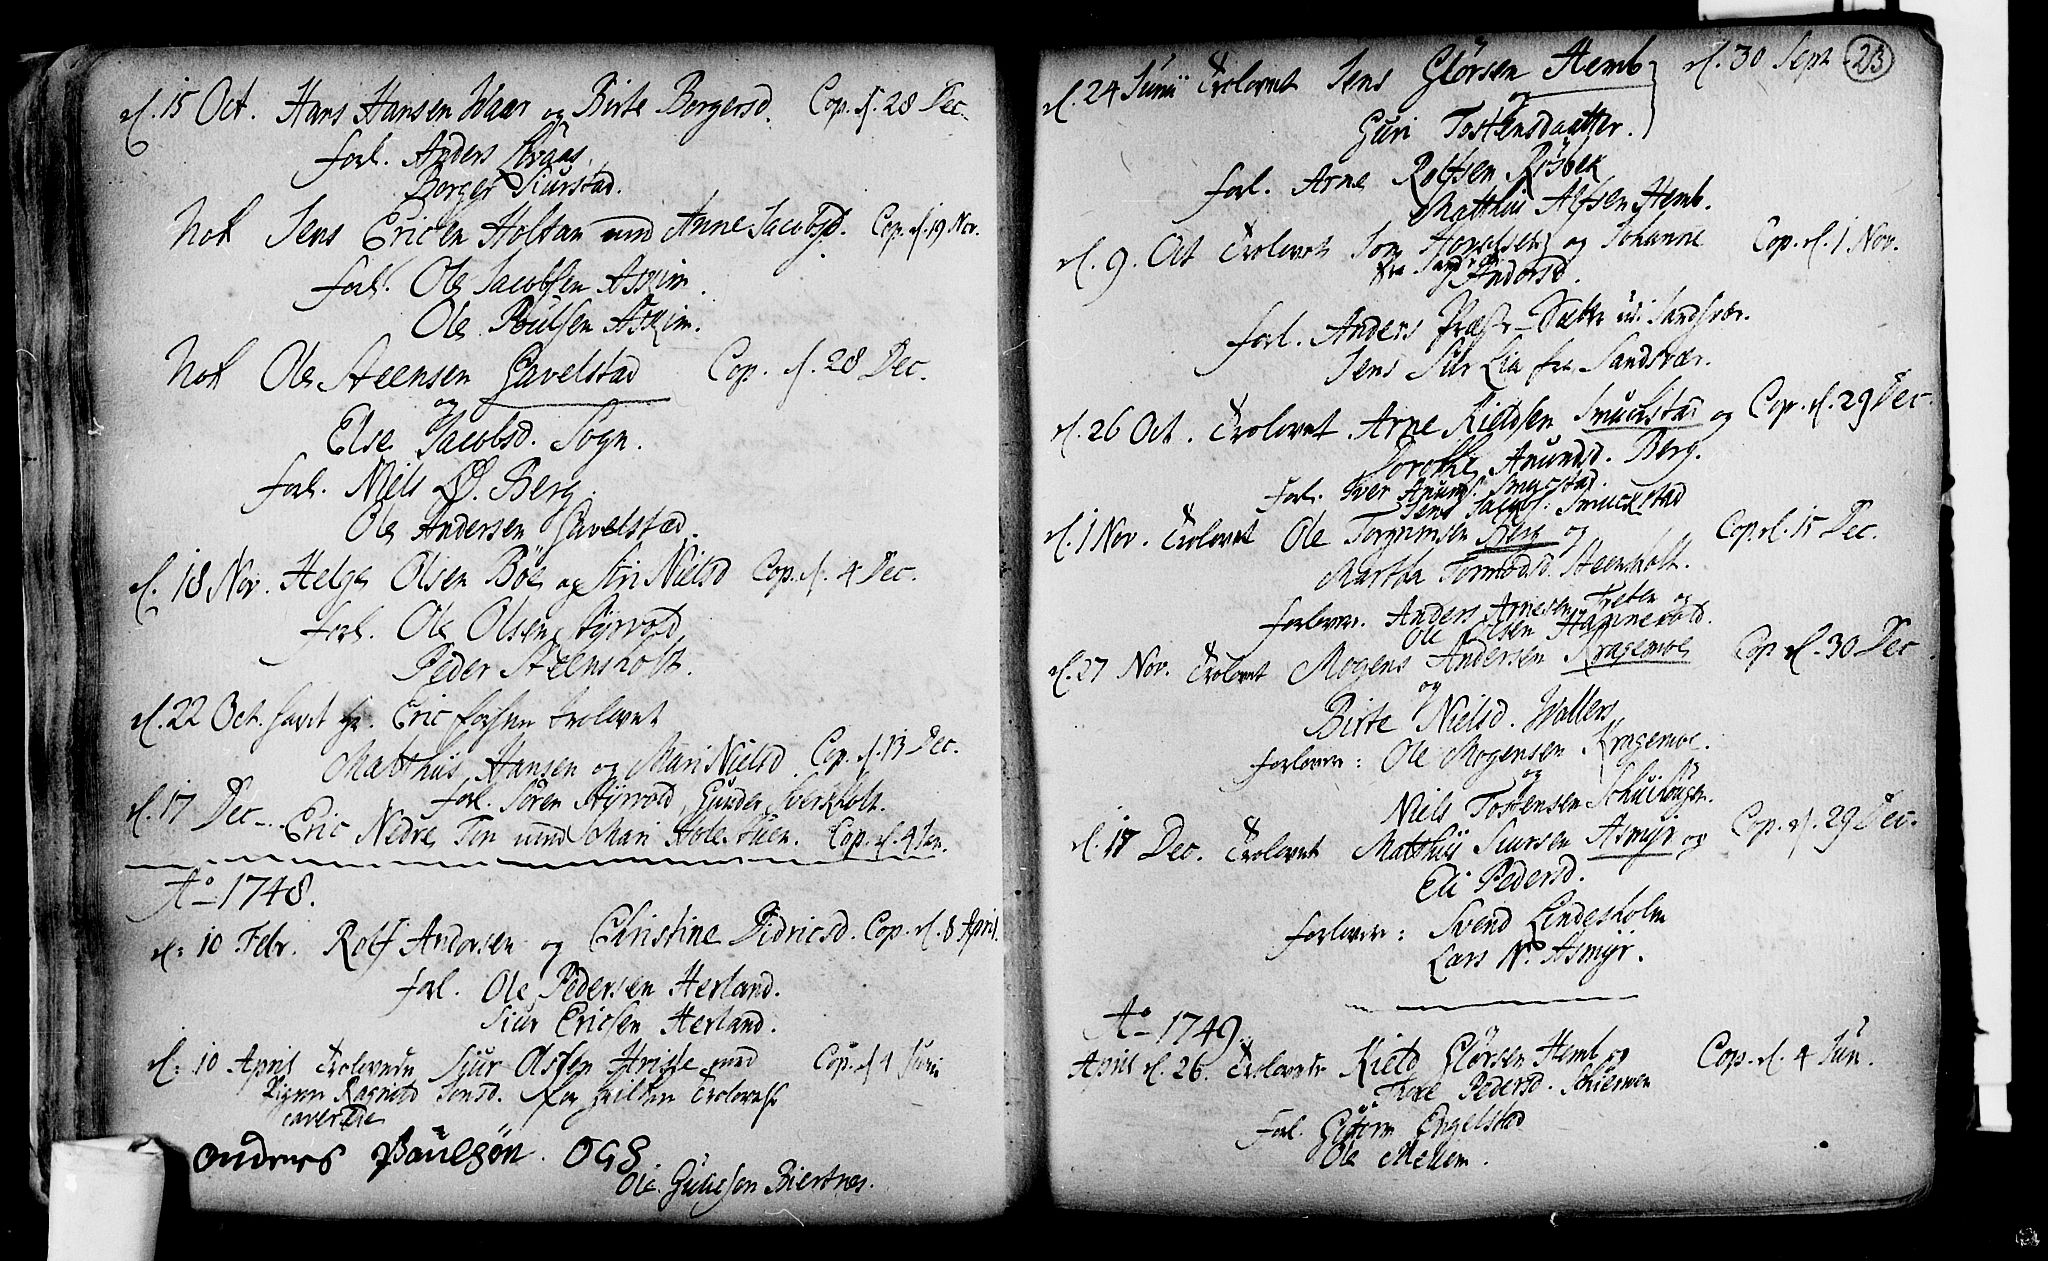 d. 15 Oct. Hans Hansen Waar og Birte Borgersd. Cop. d. 28 Dec.
forl. Anders Braas.
Borger Siurstad.
Not Jens Ericsen Holtan und Anne Jacobsd. Cop. d. 19 Nov.
forl. Ole Jacobsen Askim.
Ole Poulsen Askim.
Not Ole Steensen Gavelstad Cop. d. 28 Dec.
og
Else Jacobsd. Sogn.
forl. Niels Ø. Berg.
Ole Andersen Gavelstad.
d. 18 Nov. Helge Olsen Böe og Siri Nielsd Cop. d. 4 Dec.
forl. Ole Olsen Styrvold
Peder Steensholt.
d. 22 Oct. hr. Eric trolovet
Matthiis Hansen og Mari Nielsd Cop. d. 13 Dec.
forl. Sören Styrvold Gunder Sverkholt.
d. 17 Dec. Eric Nedre Ton und Mari Holestuen. Cop. d. 4 Jan.
Ao 1748.
d: 10 Febr. Rolf Andersen og Christine Didricsd. Cop. d. 8 April.
forl. Ole Pedersen Herland.
Siur Ericsen Herland.
d: 10 April Trolovede Siur Olsen med Cop. d 4 Juni
Pigen Ragnild Jonsd. for Trolovelse
caverede
Anders Paulsön. OGS
Ole Guliesön Biertnes.
23
d. 24 Junii Trolovet Jens Glörsen Hemb d. 30 Sept
og
Guri Tostensdaatter.
forl. Arne Rolfsen Rösbek
Matthiis Alfsen Hemb.
d. 9. Oct Trolovet Jon og Johanne Cop. d. 1 Nov.
fra Andersd.
forl. Anders Præst-Sæter udi Sandsvær.
Jens Lia fra Sandsvær.
d. 26 Oct. Trolovet Arne Kieldsen Smuckstad og Cop. d. 29 Dec.
Dorothe Amundsd. Berg.
forl. Iver Amunds. Smucstad.
Jens Jacobs. Smuckstad
d. 1 Nov. Trolovet Ole Torgrimsen Berg og Cop. d. 15 Dec.
Martha Tormodsd. Steenholt.
forlover. Anders Arnesen Freten og
Ole Olsen Hannevold.
d. 27 Nov. Trolovet Mogens Andersen Kragemoe Cop d. 30 Dec
og
Birte Nielsd. Wallers
forlovere: Ole Mogensen Kragemoe.
og
Niels Tostensen Schuihougen.
d. 17 Dec. Trolovet Matthiis Siursen Asmyr og Cop. d. 29 Dec.
Eli Pedersd.
forlovere: Svend Lindesholm
Lars N. Asmyr.
Ao 1749.
April d. 26. Trolovede Kield Glörsen Hemb og Cop. d. 4 Jun.
Thore Pedersd. Schierven
forl. Guttorm Engelstad
Ole Mellem.